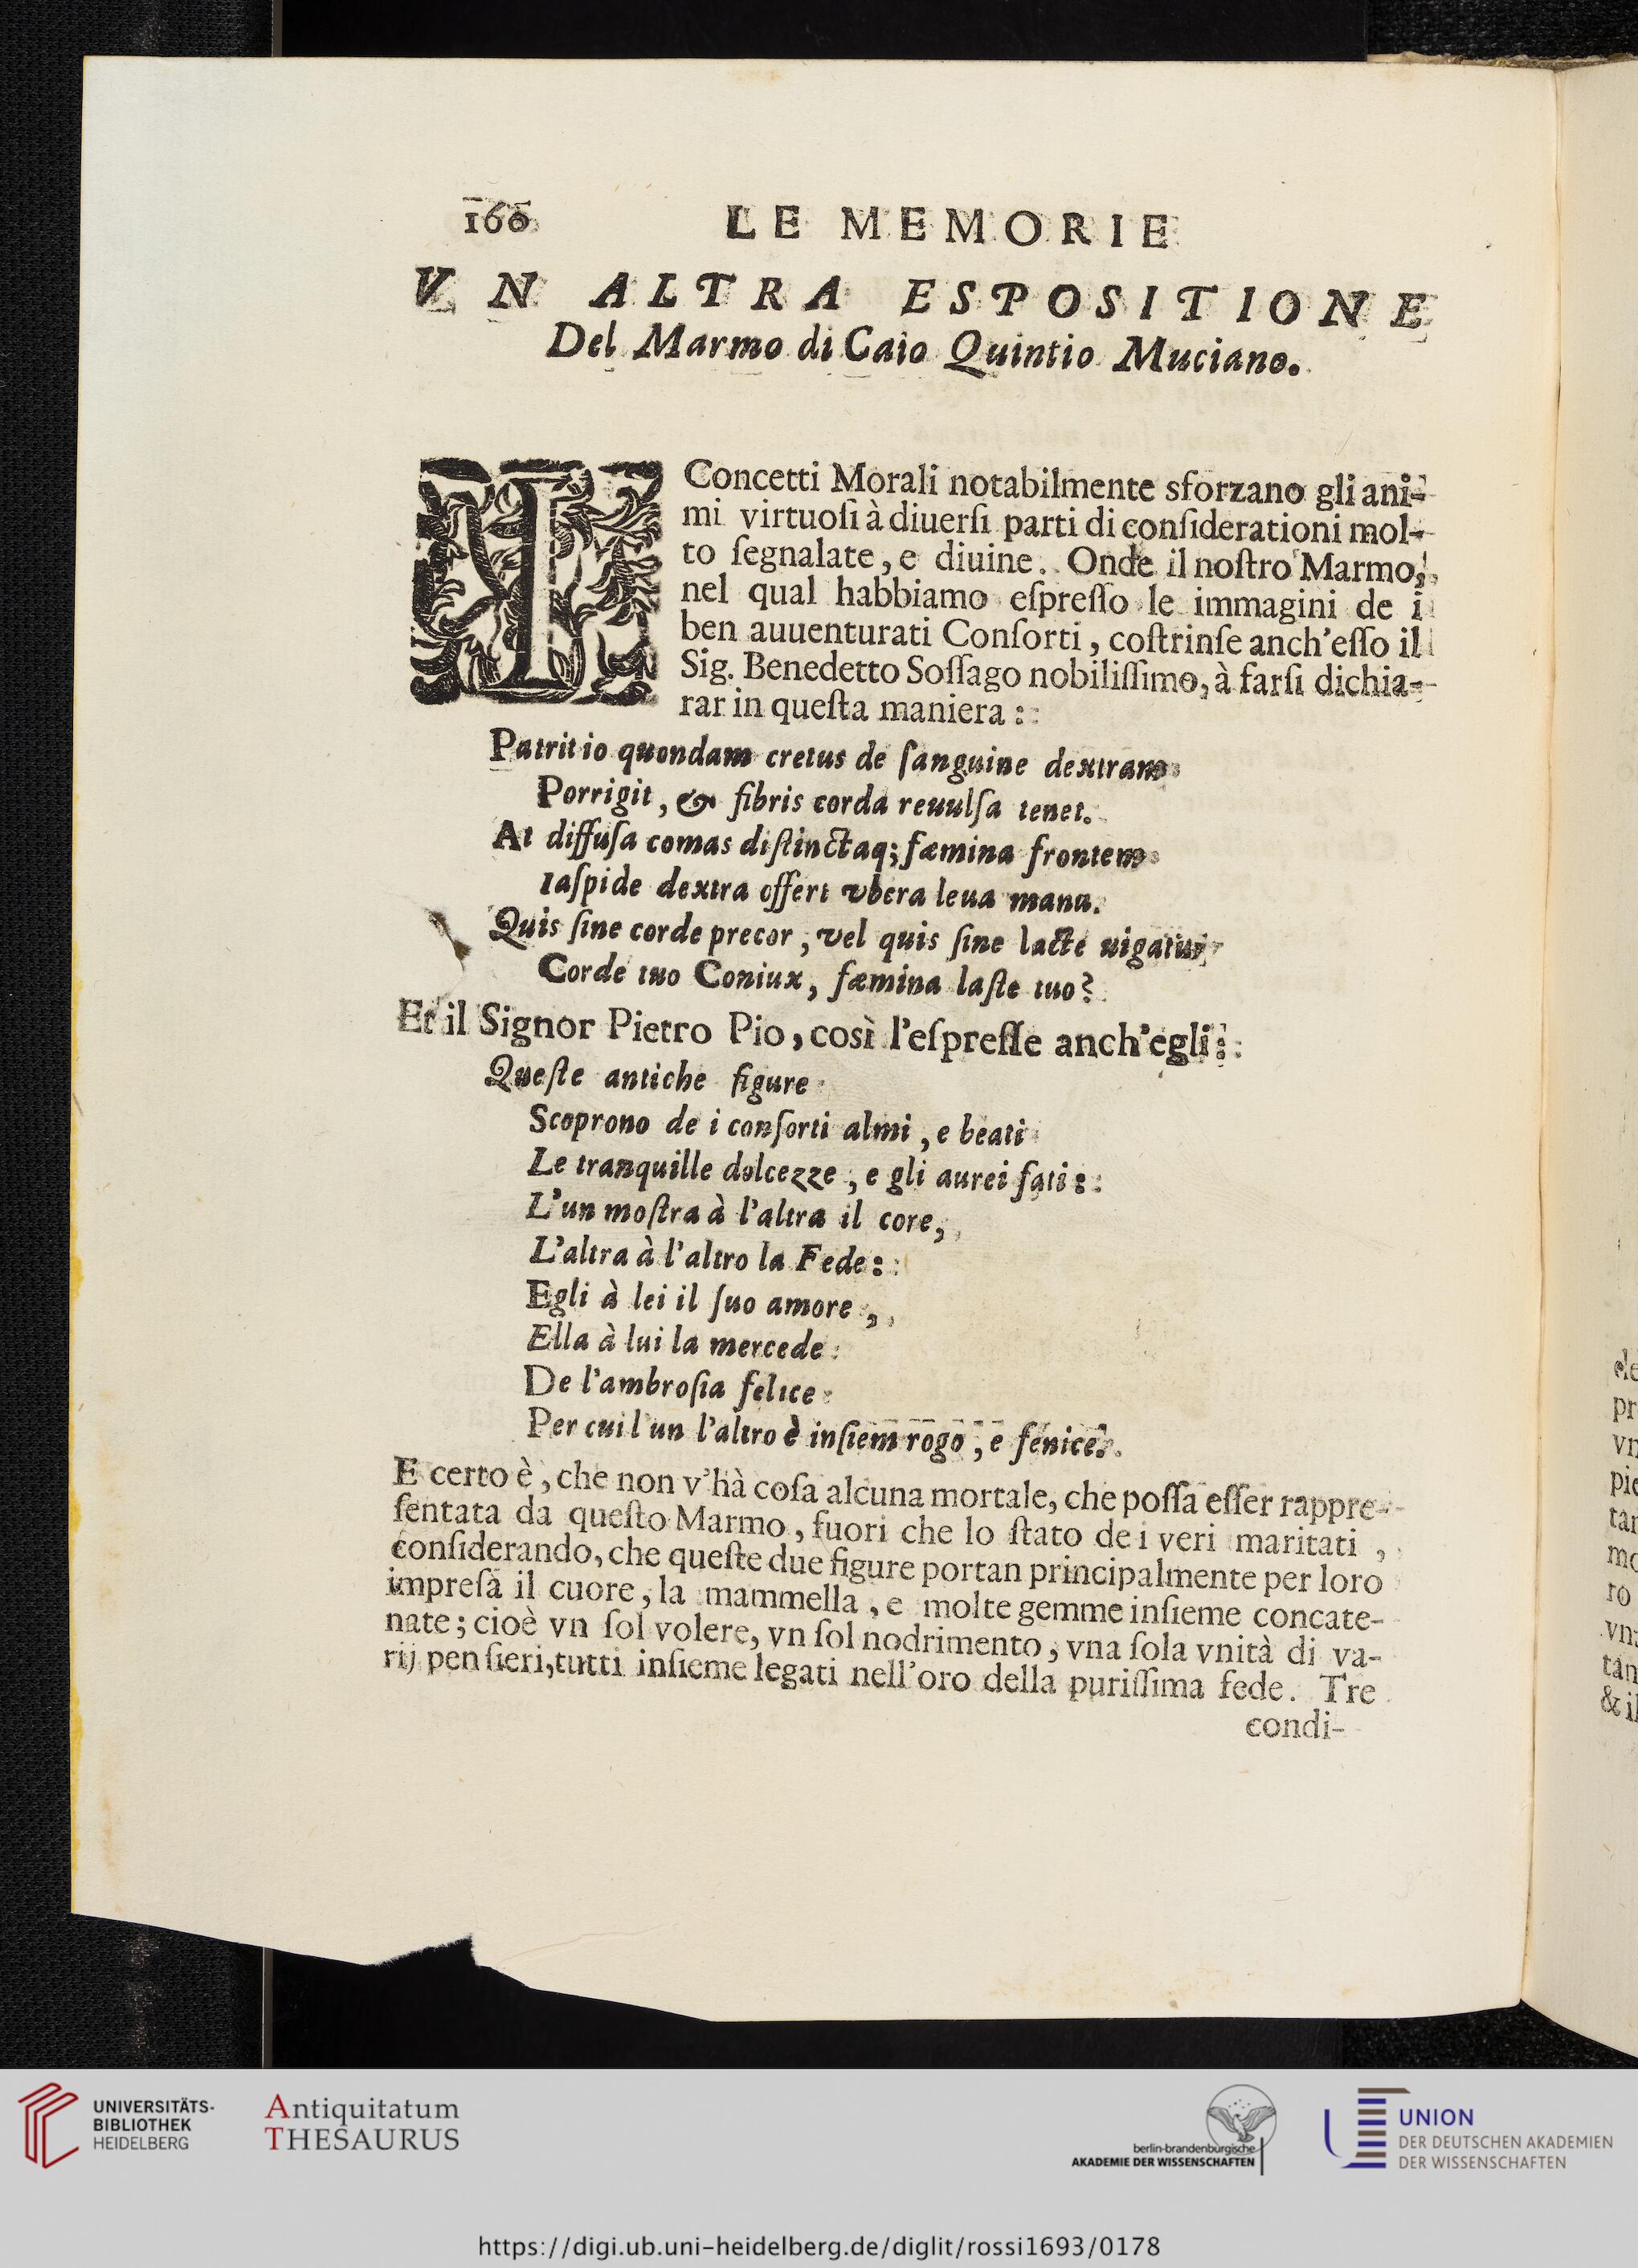 160 LE MEMORIE
VN ALTRA ESPOSITIONE
Del Marmo di Caio Quintio Muciano.
I Concetti Morali notabilmente sforzano gli ani-
mi virtuoſi à diuerſi parti di conſiderationi mol-
to ſegnalate, e diuine. Onde il noſtro Marmo,
nel qual habbiamo eſpreſſo le immagini de i
ben auuenturati Conſorti, coſtrinſe anch'eſſo il
Sig. Benedetto Soſſago nobiliſſimo, à farſi dichia-
rar in queſta maniera:
Patritio quondam cretus de ſanguine dextram
Porrigit, & fibris corda reuulſa tenet.
At diffuſa comas diſtinctaq; fæmina frontem
Iaſpide dextra offert vbera leua manu.
Quis ſine corde precor, vel quis ſine lacte uigatur
Corde tuo Coniux, fæmina laſte tuo?
Et il Signor Pietro Pio, così l'eſpreſſe anch'egli:
Queſte antiche figure
Scoprono de i conſorti almi, e beati
Le tranquille dolcezze, e gli aurei fati:
L'un moſtra à l'altra il core,
L'altra à l'altro la Fede:
Egli à lei il ſuo amore,
Ella à lui la mercede
De l'ambroſia felice
Per cui l'un l'altro è inſiem rogo, e fenice.
E certo è, che non v'hà coſa alcuna mortale, che poſſa eſſer rappre-
ſentata da queſto Marmo, fuori che lo ſtato de i veri maritati,
conſiderando, che queſte due figure portan principalmente per loro
impreſa il cuore, la mammella, e molte gemme inſieme concate-
nate; cioè vn ſol volere, vn ſol nodrimento, vna ſola vnità di va-
rij penſieri, tutti inſieme legati nell'oro della puriſſima fede. Tre
condi-
pr
vn
pie
tar
mo
ro
vn
tan
& il
UNIVERSITÄTS-
BIBLIOTHEK
HEIDELBERG
Antiquitatum
THESAURUS
berlin-brandenburgische
AKADEMIE DER WISSENSCHAFTEN
UNION
DER DEUTSCHEN AKADEMIEN
DER WISSENSCHAFTEN
https://digi.ub.uni-heidelberg.de/diglit/rossi1693/0178